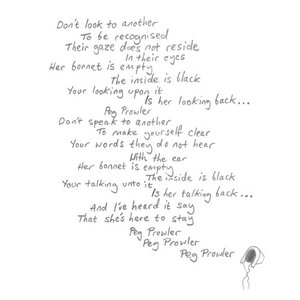 Don't look to another
To be recognised
Their gaze does not reside
In their eyes
Her bonnet is empty
The inside is black
Your looking upon it
Is her looking back...
Peg Prowler
Don't speak to another
To make yourself clear
Your words they do not hear
With the ear
Her bonnet is empty
The inside is black
Your talking unto it
Is her talking back...
And I've heard it say
That she's here to stay
Peg Prowler
Peg Prowler
Peg Prowler